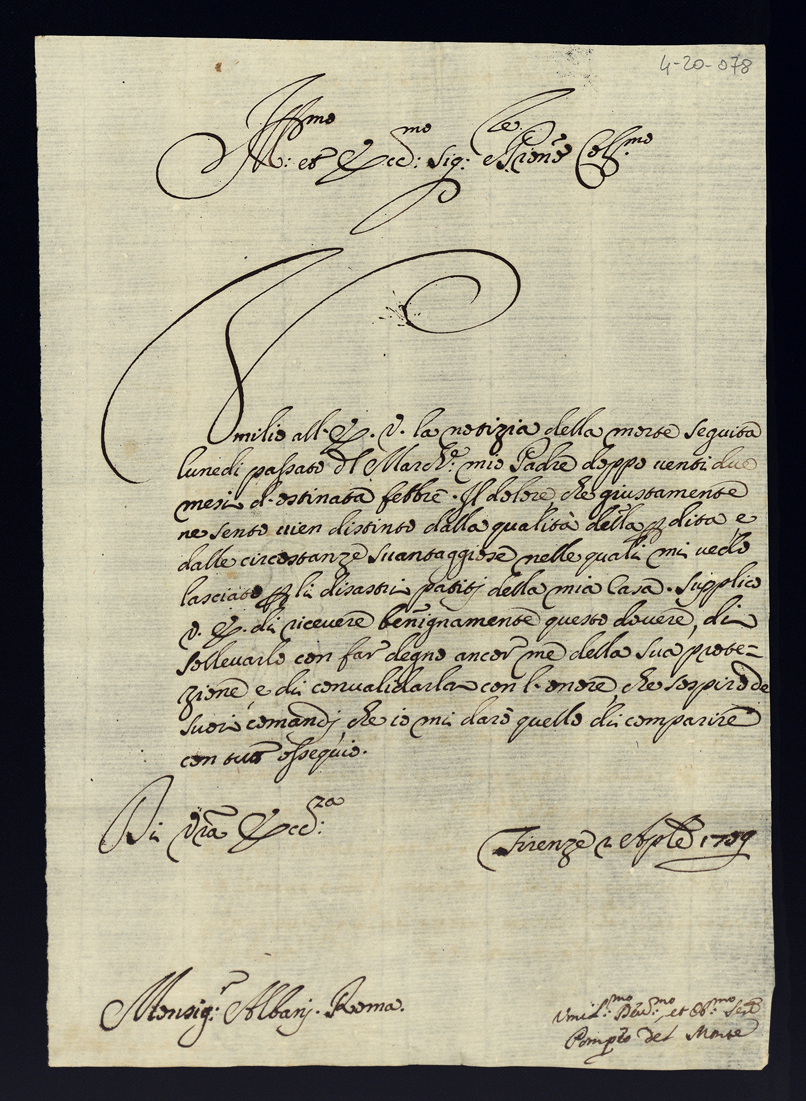 4-20-078
Ill.mo et Ecc:mo Sig:re Pron'e Col.mo
Umilio all'E. V. la notizia della morte seguita
lunedi passato del March.e mio Padre doppo venti due
mesi d'ostinata febbre. Il dolore, che giustamente
ne sento vien distinto dalla qualità della perdita e
dalle circostanze svantaggiose nelle quali mi vedo
lasciato per li disastri patitj della mia Casa. Supplico
V. E. di ricevere benignamente questo dovere, di
sollevarlo con far degno ancor me della sua prote=
zione, e di convalidarla con l'onore, che sospiro de
suoi comandj che io mi darò quello di comparire
con tutto ossequio.
Di V'ra Ecc:za
Firenze Aple 1709
Monsig:r Albanj. Roma.
Umil.mo Div.mo et Ob.mo Ser.e
Pompeo del Monte